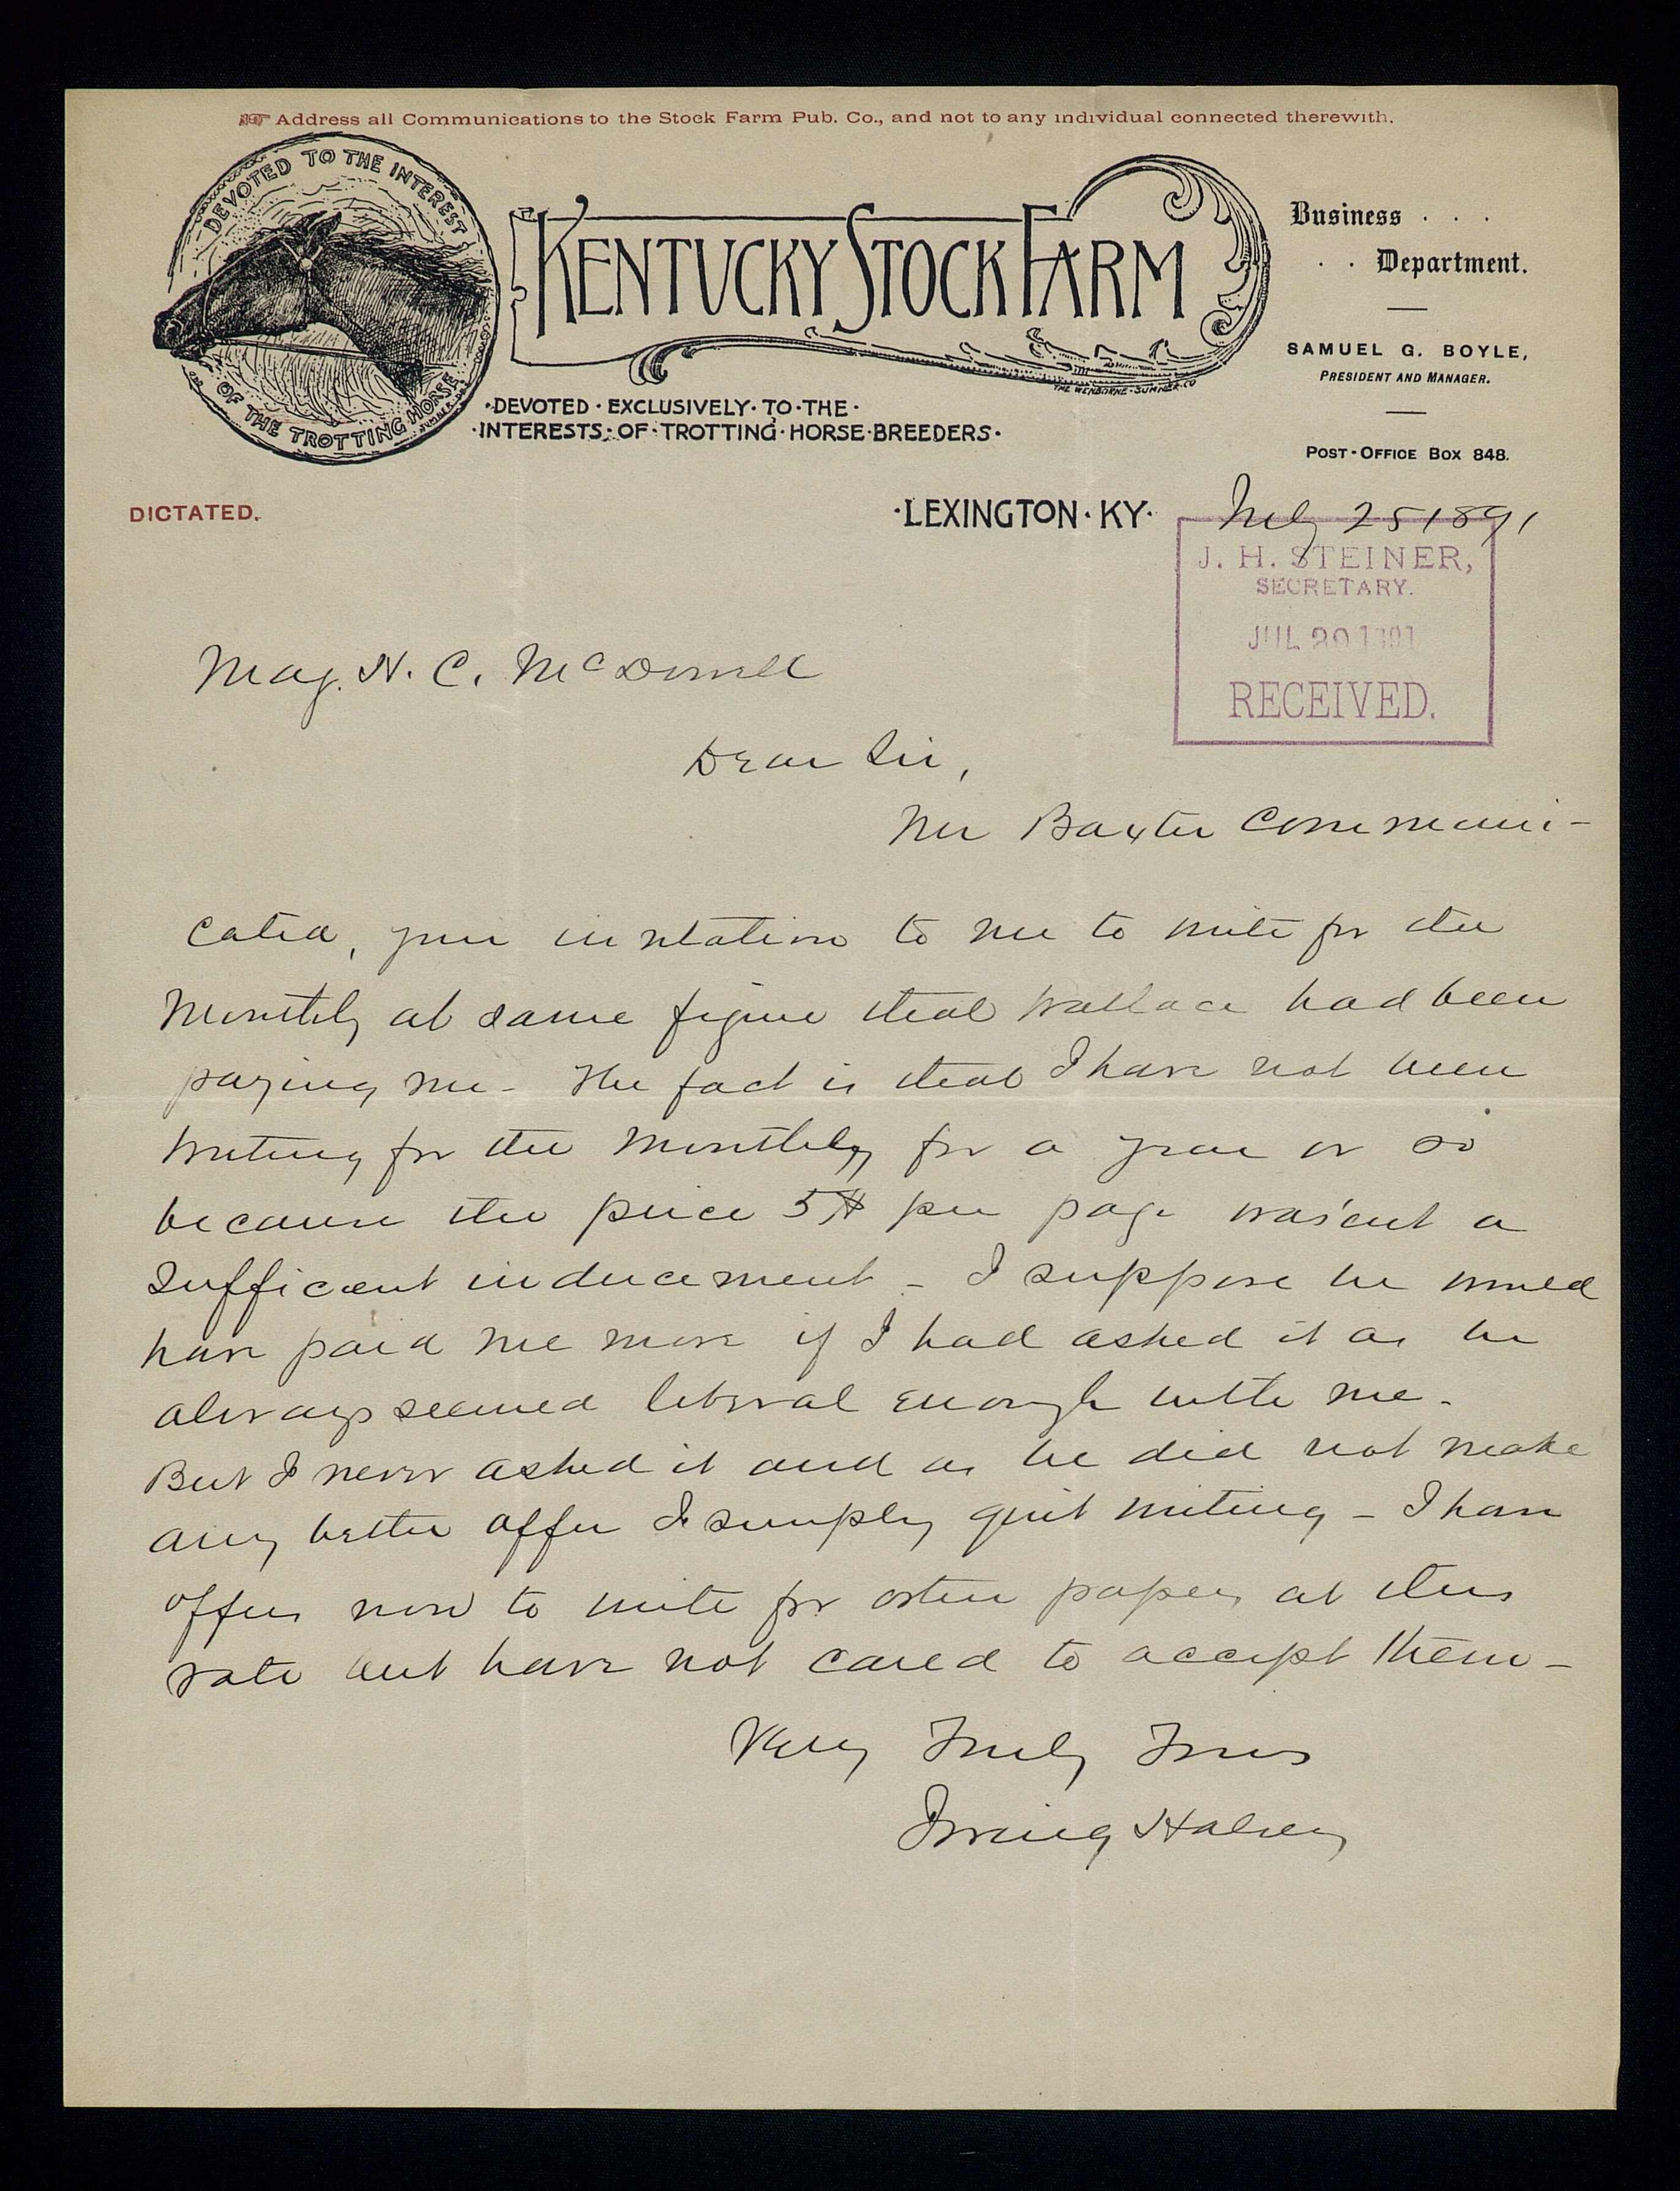 Address all Communications to the Stock Farm Pub. Co., and not to any individual connected therewith.
DEVOTED TO THE INTEREST
OF THE TROTTING HORSE
KENTUCKY STOCK FARM
THE WENBORNE-SUMNER-CO
·DEVOTED·EXCLUSIVELY·TO·THE·
·INTERESTS·OF·TROTTING·HORSE·BREEDERS·
Business . . .
. . Department.
SAMUEL G. BOYLE,
PRESIDENT AND MANAGER.
POST-OFFICE BOX 848.
DICTATED.
·LEXINGTON·KY· July 25 1891
J. H. STEINER,
SECRETARY.
JUL 29 1891
RECEIVED.
Maj. H. C. McDowell
Dear Sir,
Mr Baxter Communi-
cated, your invitation to me to write for the
Monthly at same figure that Wallace had been
paying me - The fact is that I have not been
writing for the Monthly for a year or so
because the price 5$ per page was'ent a
sufficient inducement - I suppose he would
have paid me more if I had asked it as he
always seemed liberal enough with me.
But I never asked it and as he did not make
any better offer I simply quit writing - I have
offers now to write for other papers at this
rate but have not cared to accept them -
Very Truly Yours
Irving Halsey